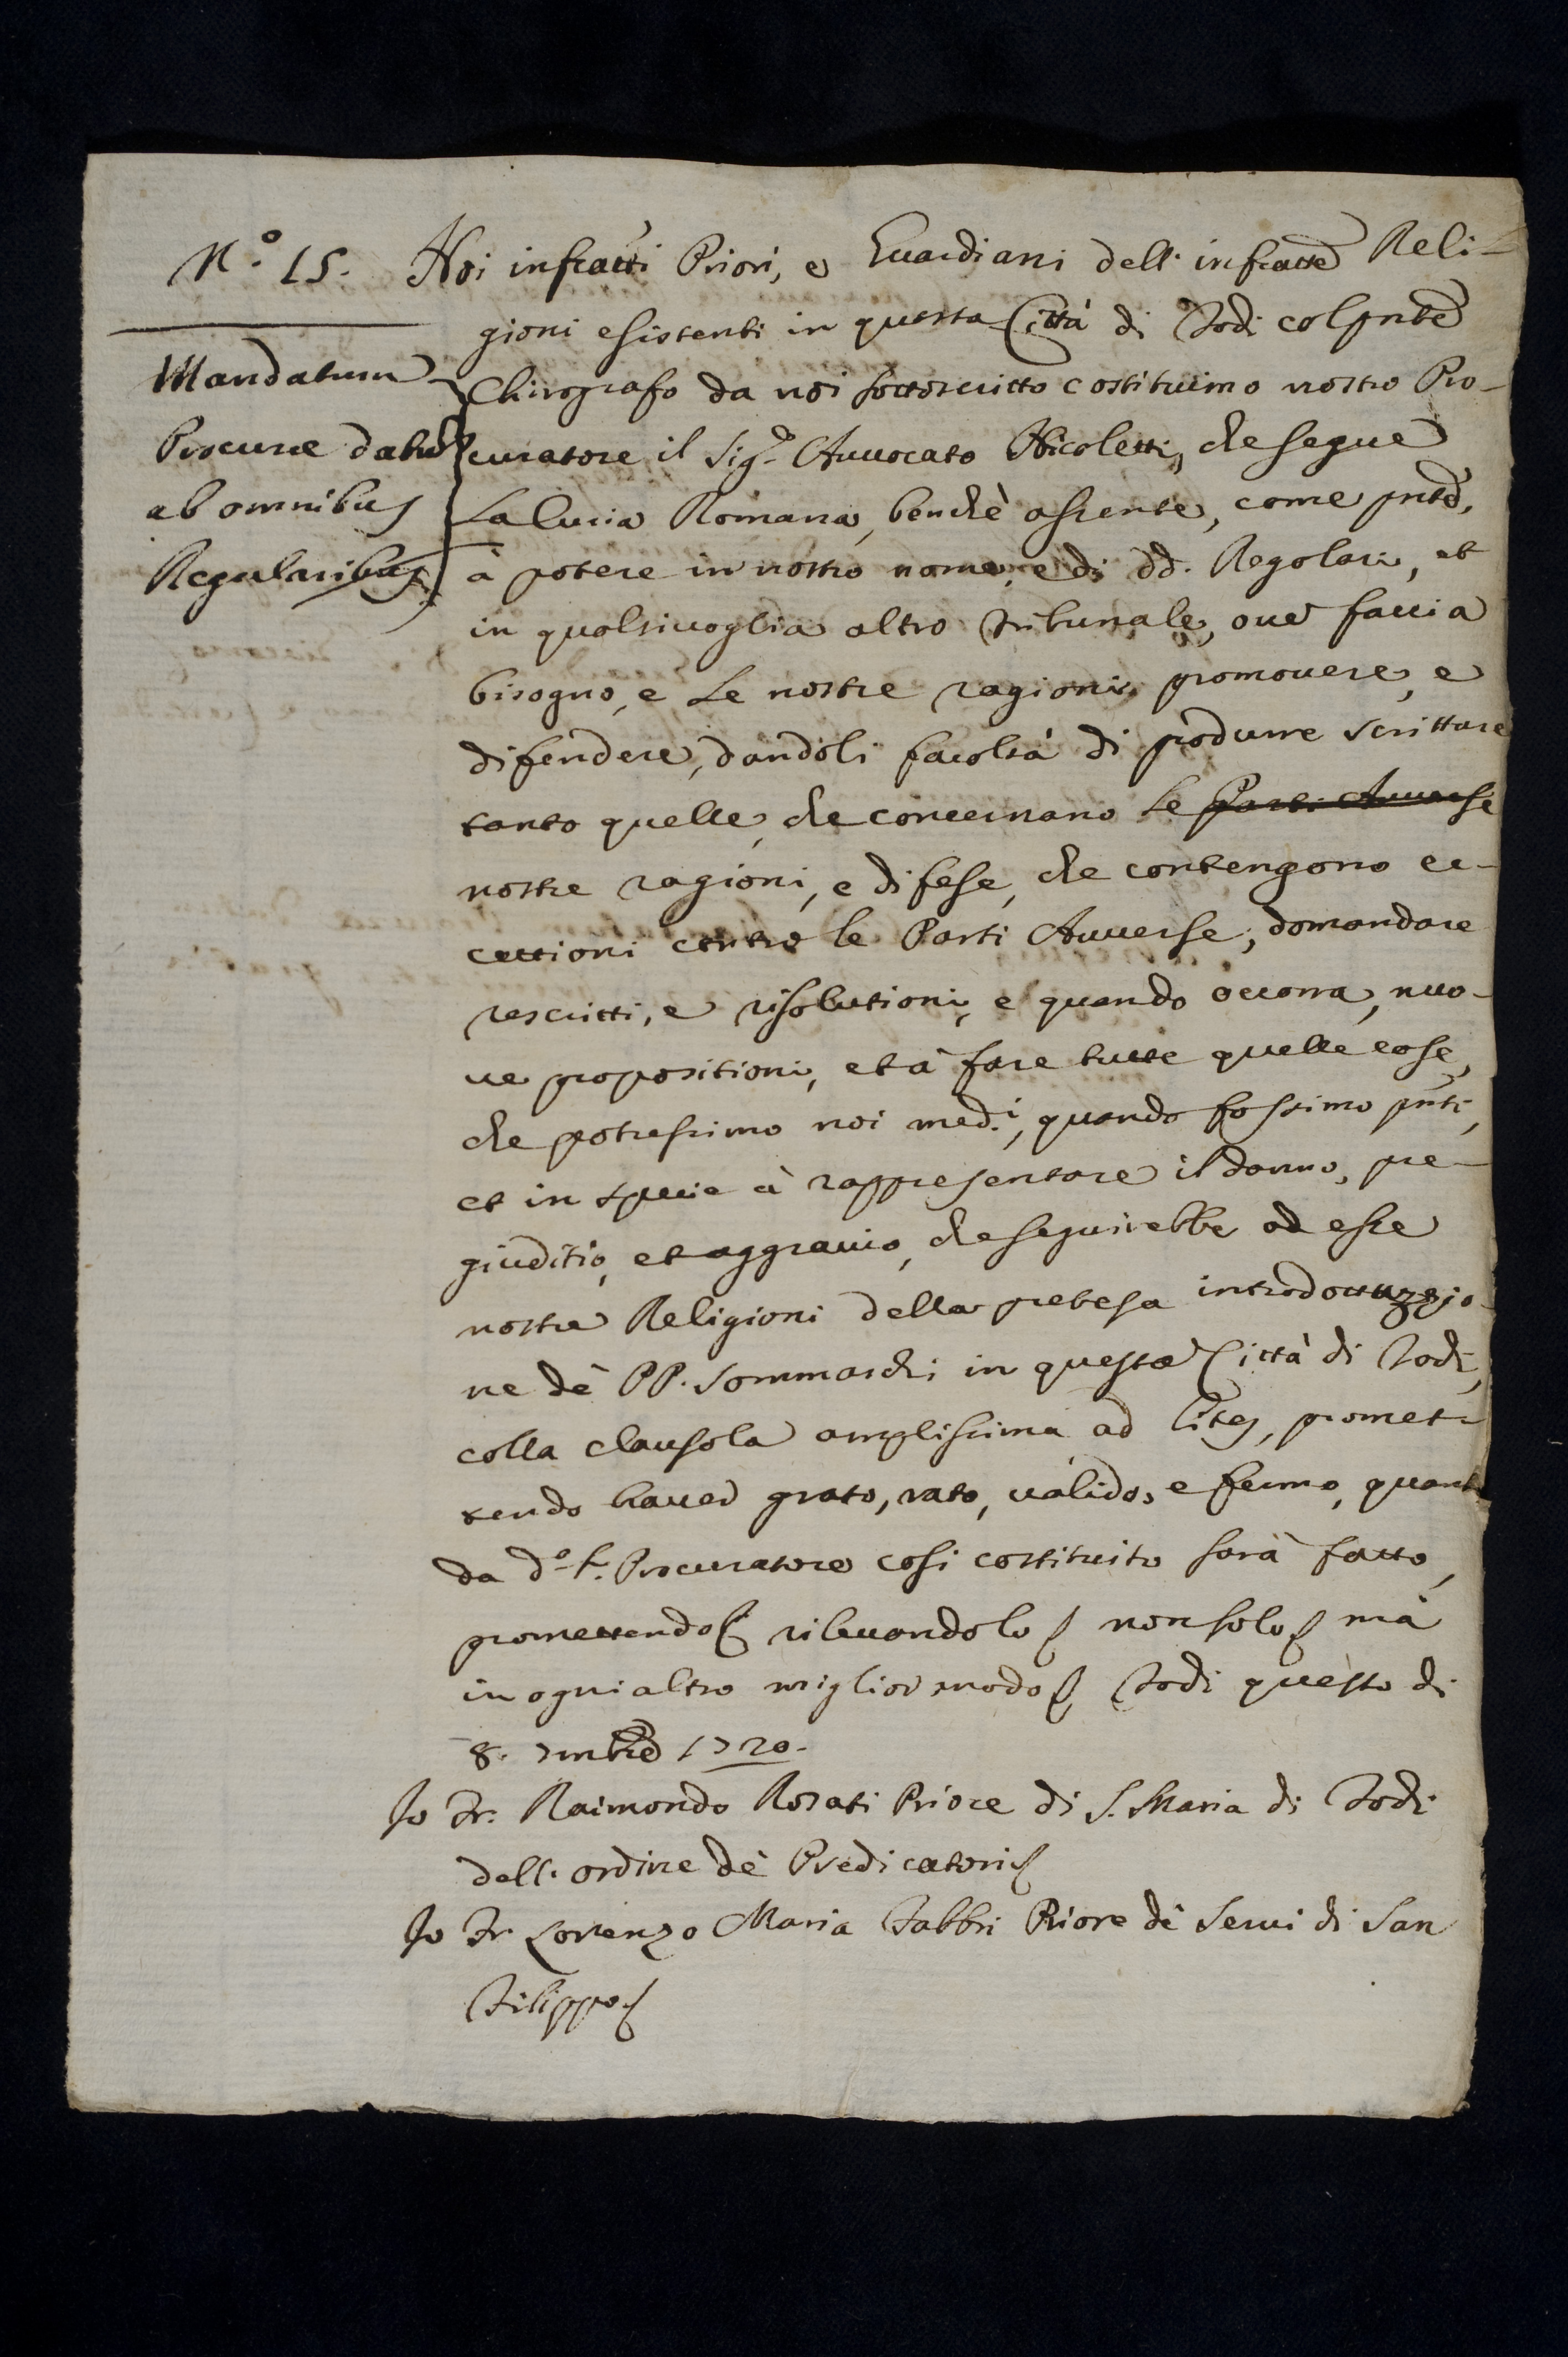 N.º 15.
Mandatum
Procurae datum
ab omnibus
Regularibus
Noi infratti Priori, e Guardiani dell' infratte Reli-
gioni esistenti in questa Città di Todi col pnte
Chirografo da noi sottoscritto costituimo nostro Pro-
curatore il Sig.r Auuocato Nicoletti, che segue
La Curia Romana, benchè assente, come pnte,
à potere in nostro nome, e di dd. Regolari, et
in qualsiuoglia altro Tribunale, oue faccia
bisogno, e Le nostre ragioni, promouere, e
difendere, dandoli facoltà di produrre scritture
tanto quelle, che concernano Le Parti Auuerse
nostre ragioni, e difese, che contengono ec-
cettioni contro le Parti Auuerse, domandare
rescritti, e risolutioni, e quando occorra, nuo-
ue propositioni, et à fare tutte quelle cose,
che potressimo noi med.i, quando fossimo pnti,
et in specie à rappresentare il danno, pre-
giuditio, et aggrauio, che seguirebbe ad esse
nostre Religioni della pretesa introduzzio-
ne dè PP. Sommaschi in questa Città di Todi,
colla clausola amplissima ad Lites, promet-
tendo hauer grato, rato, ualido, e fermo, quanto
da d.º S. Procuratore cosi costituito sarà fatto,
promettendo rileuandolo non solo mà
in ogni altro miglior modo Todi questo di
8. 7mbre 1720.
Io Fr. Raimondo Rosati Priore di S. Maria di Todi
dell' ordine dè Predicatori
Io Fr. Lorenzo Maria Fabbri Priore dè Serui di San
Filippo